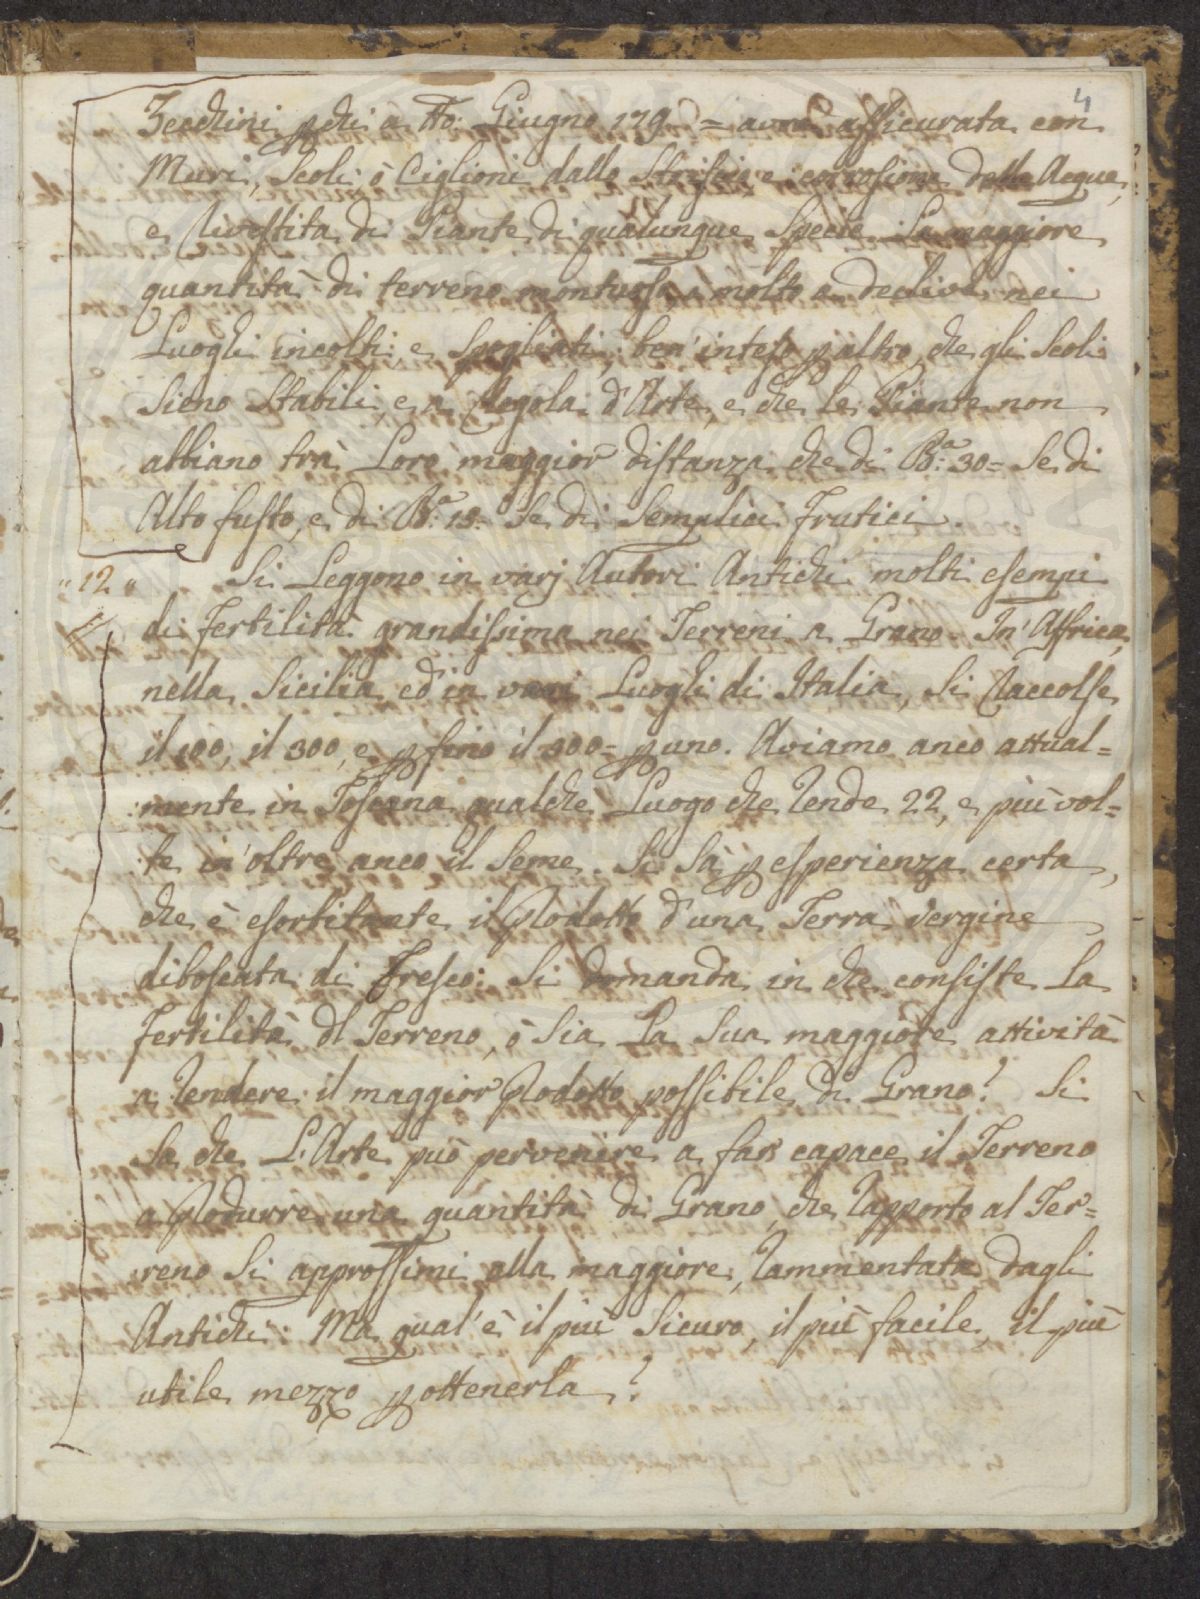 4
Zecchini pchi a tto: Giugno 179 = avrà assicurata con
Muri, Scoli, ò Ciglioni dallo Striscio, e corrosione delle Acque,
e rivestita di Piante di qualunque Specie La maggiore
quantità di terreno montuoso, e molto a declive nei
Luoghi incolti, e spogliati; ben' inteso p altro che gli Scoli
Sieno Stabili, e a Regola d'Arte, e che Le Piante non
abbiano trà Loro maggior distanza che di B.ª 30 = Se di
Alto fusto, e di B.ª 15 = Se di Semplici frutici.
"12" Si Leggono in varj Autori Antichi molti esempi
di fertilità grandissima nei Terreni a Grano. In' Affrica,
nella Sicilia ed in varj Luoghi di Italia, Si raccolse
il 100, il 300, e p fino il 400 = p uno. Aviamo anco attual=
mente in Toscana qualche Luogo che rende 22, e più vol=
te in' oltre anco il Seme. Si Sà p esperienza certa,
che è esorbitante il Prodotto d'una Terra Vergine
diboscata di Fresco: Si domanda in che consiste La
Fertilità dl Terreno, ò Sia La Sua maggiore attività
a rendere il maggior Prodotto possibile di Grano? Si
Sa che L'Arte può pervenire a far capace il Terreno
a Produrre una quantità di Grano, che rapporto al Ter=
reno Si approssimi alla maggiore, rammentata dagli
Antichi: Ma qual'è il più Sicuro, il più facile, il più
utile mezzo p ottenerla?